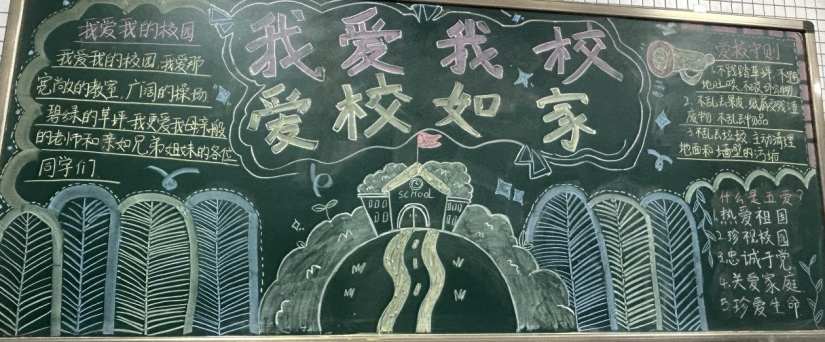 我爱我的校园
我爱我的校园,我爱那
宽敞的教室、广阔的操场、
碧绿的草坪,我更爱我母亲般
的老师和亲如兄弟姐妹的各位
同学们
我爱我校
爱校如家
SCHOOL
爱校守则
1.不践踏草坪 不随
地吐痰 不破坏公物
2.不乱丢果皮 纸屑
废物 不乱丢物品
3.不乱丢垃圾 主动清理
地面和墙壁的污垢
什么是五爱?
1.热爱祖国
2.珍视校园
3.忠诚于党
4.关爱家庭
5.珍爱生命